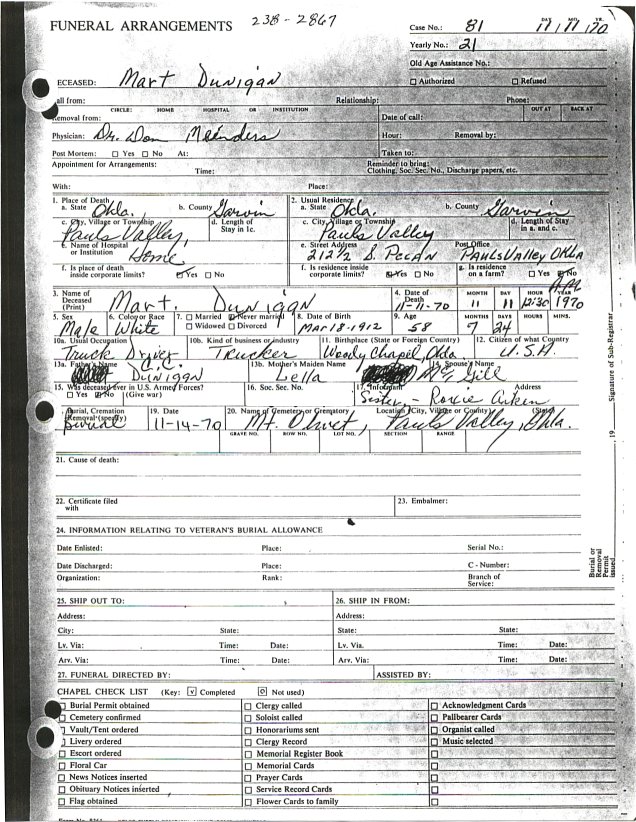 FUNERAL ARRANGEMENTS 238-2867 Case No.: 81 DAY MO. YR. 11/11/70
Yearly No.: 21
Old Age Assistance No.:
ECEASED: Mart Dunigan ☐ Authorized ☐ Refused
all from: Relationship: Phone:
CIRCLE: HOME HOSPITAL OR INSTITUTION OUT AT BACK AT
emoval from: Date of call:
Physician: Dr. Don Meinders Hour: Removal by:
Post Mortem: ☐ Yes ☐ No At: Taken to:
Appointment for Arrangements: Reminder to bring:
Time: Clothing, Soc. Sec. No., Discharge papers, etc.
With: Place:
1. Place of Death 2. Usual Residence
a. State Okla. b. County Garvin a. State Okla. b. County Garvin
c. City, Village or Township d. Length of Stay in 1c. c. City, Village or Township d. Length of Stay in a. and c.
Pauls Valley, Pauls Valley
e. Name of Hospital or Institution Home e. Street Address 212½ S. Pecan Post Office Pauls Valley Okla
f. Is place of death inside corporate limits? ☑ Yes ☐ No f. Is residence inside corporate limits? ☑ Yes ☐ No g. Is residence on a farm? ☐ Yes ☑ No
3. Name of Deceased (Print) Mart. Dunigan 4. Date of Death 11-11-70 MONTH 11 DAY 11 HOUR 12:30 AM YEAR 1970
5. Sex 6. Color or Race 7. ☐ Married ☑ Never married ☐ Widowed ☐ Divorced 8. Date of Birth 9. Age MONTHS DAYS HOURS MINS.
Male White Mar 18-1912 58 7 24
10a. Usual Occupation 10b. Kind of business or industry 11. Birthplace (State or Foreign Country) 12. Citizen of what Country
Truck Driver Trucker Woody Chapel, Okla. U.S.A.
13a. Father's Name 13b. Mother's Maiden Name 14. Spouse's Name
C.C. Dunigan Lella McGill
15. Was deceased ever in U.S. Armed Forces? 16. Soc. Sec. No. 17. Informant Address
☐ Yes ☑ No (Give war) Sister - Roxie Aiken
Burial, Cremation Removal (specify) 19. Date 20. Name of Cemetery or Crematory Location (City, Village or County) (State)
Burial 11-14-70 Mt. Olivet, Pauls Valley, Okla.
GRAVE NO. ROW NO. LOT NO. SECTION RANGE
21. Cause of death:
22. Certificate filed with 23. Embalmer:
24. INFORMATION RELATING TO VETERAN'S BURIAL ALLOWANCE
Date Enlisted: Place: Serial No.:
Date Discharged: Place: C - Number:
Organization: Rank: Branch of Service:
Burial or Removal Permit issued , 19 Signature of Sub-Registrar
25. SHIP OUT TO: 26. SHIP IN FROM:
Address: Address:
City: State: State: State:
Lv. Via: Time: Date: Lv. Via. Time: Date:
Arv. Via: Time: Date: Arv. Via: Time: Date:
27. FUNERAL DIRECTED BY: ASSISTED BY:
CHAPEL CHECK LIST (Key: ☑ Completed ☐ Not used)
☐ Burial Permit obtained ☐ Clergy called ☐ Acknowledgment Cards
☐ Cemetery confirmed ☐ Soloist called ☐ Pallbearer Cards
☐ Vault/Tent ordered ☐ Honorariums sent ☐ Organist called
☐ Livery ordered ☐ Clergy Record ☐ Music selected
☐ Escort ordered ☐ Memorial Register Book ☐
☐ Floral Car ☐ Memorial Cards ☐
☐ News Notices inserted ☐ Prayer Cards ☐
☐ Obituary Notices inserted ☐ Service Record Cards ☐
☐ Flag obtained ☐ Flower Cards to family ☐